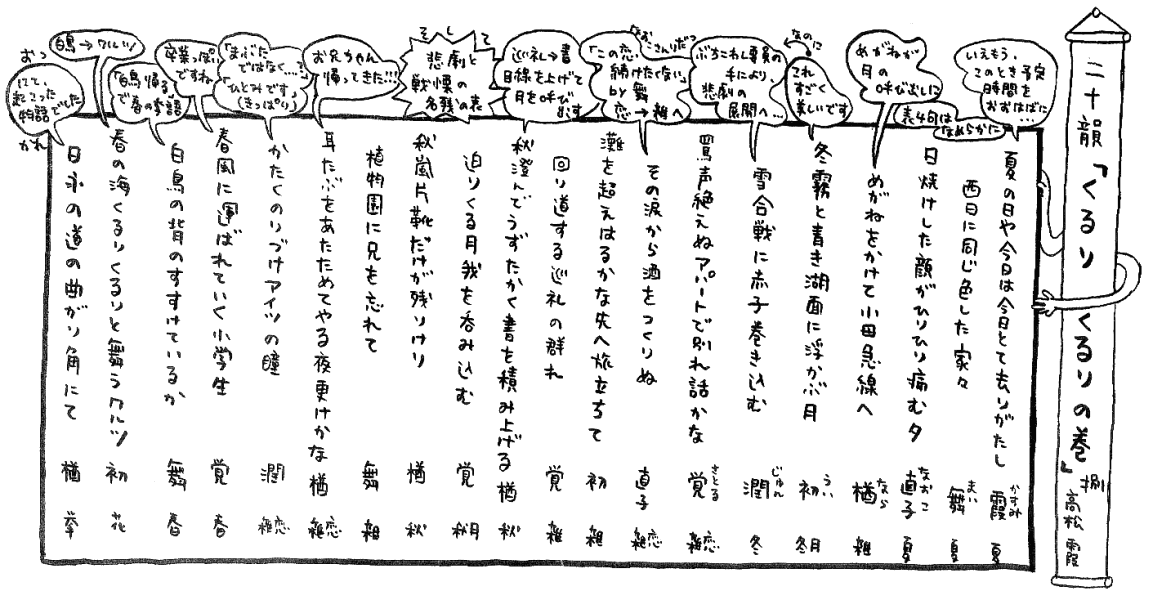 二十韻『くるりくるりの巻』捌 高松霞
いえもう、このとき予定時間をおおはばに…
夏の日や今日は今日とて去りがたし 霞 かすみ 夏
西日に同じ色した家々 舞 まい 夏
表4句はなめらかに
日焼けした顔がひりひり痛む夕 直子 なおこ 夏
めがねが月の呼び出しに
めがねをかけて小田急線へ 楢 なら 雑
なのに
これすごく美しいです
冬霧と青き湖面に浮かぶ月 初 うい 冬月
ぶちこわし要員の手により、悲劇の展開へ…
雪合戦に赤子巻き込む 潤 じゅん 冬
罵声絶えぬアパートで別れ話かな 覚 さとる 恋雑
なおこさんりだつ
「この恋、続けたくない」by舞 恋→雑へ
その涙から酒をつくりぬ 直子 恋雑
灘を超えはるかな先へ旅立ちて 初 雑
回り道する巡礼の群れ 覚 雑
巡礼→書 目線を上げて月を呼びだす
秋澄んでうずたかく書を積み上げる 楢 秋
迫りくる月我を呑み込む 覚 秋月
そして
悲劇と戦慄の名残の表
秋嵐片靴だけが残りけり 楢 秋
植物園に兄を忘れて 舞 雑
お兄ちゃん帰ってきた!!!
耳たぶをあたためてやる夜更けかな 楢 恋雑
「まぶたではなく…?」「ひとみです」(きっぱり)
かたくのりづけアイツの瞳 潤 恋雑
卒業っぽいですね
春風に運ばれていく小学生 覚 春
「白鳥帰る」で春の季語
白鳥の背のすすけているか 舞 春
白鳥→ワルツ
春の海くるりくるりと舞うワルツ 初 花
おっ
にて、起こった物語でした
日永の道の曲がり角にて 楢 挙